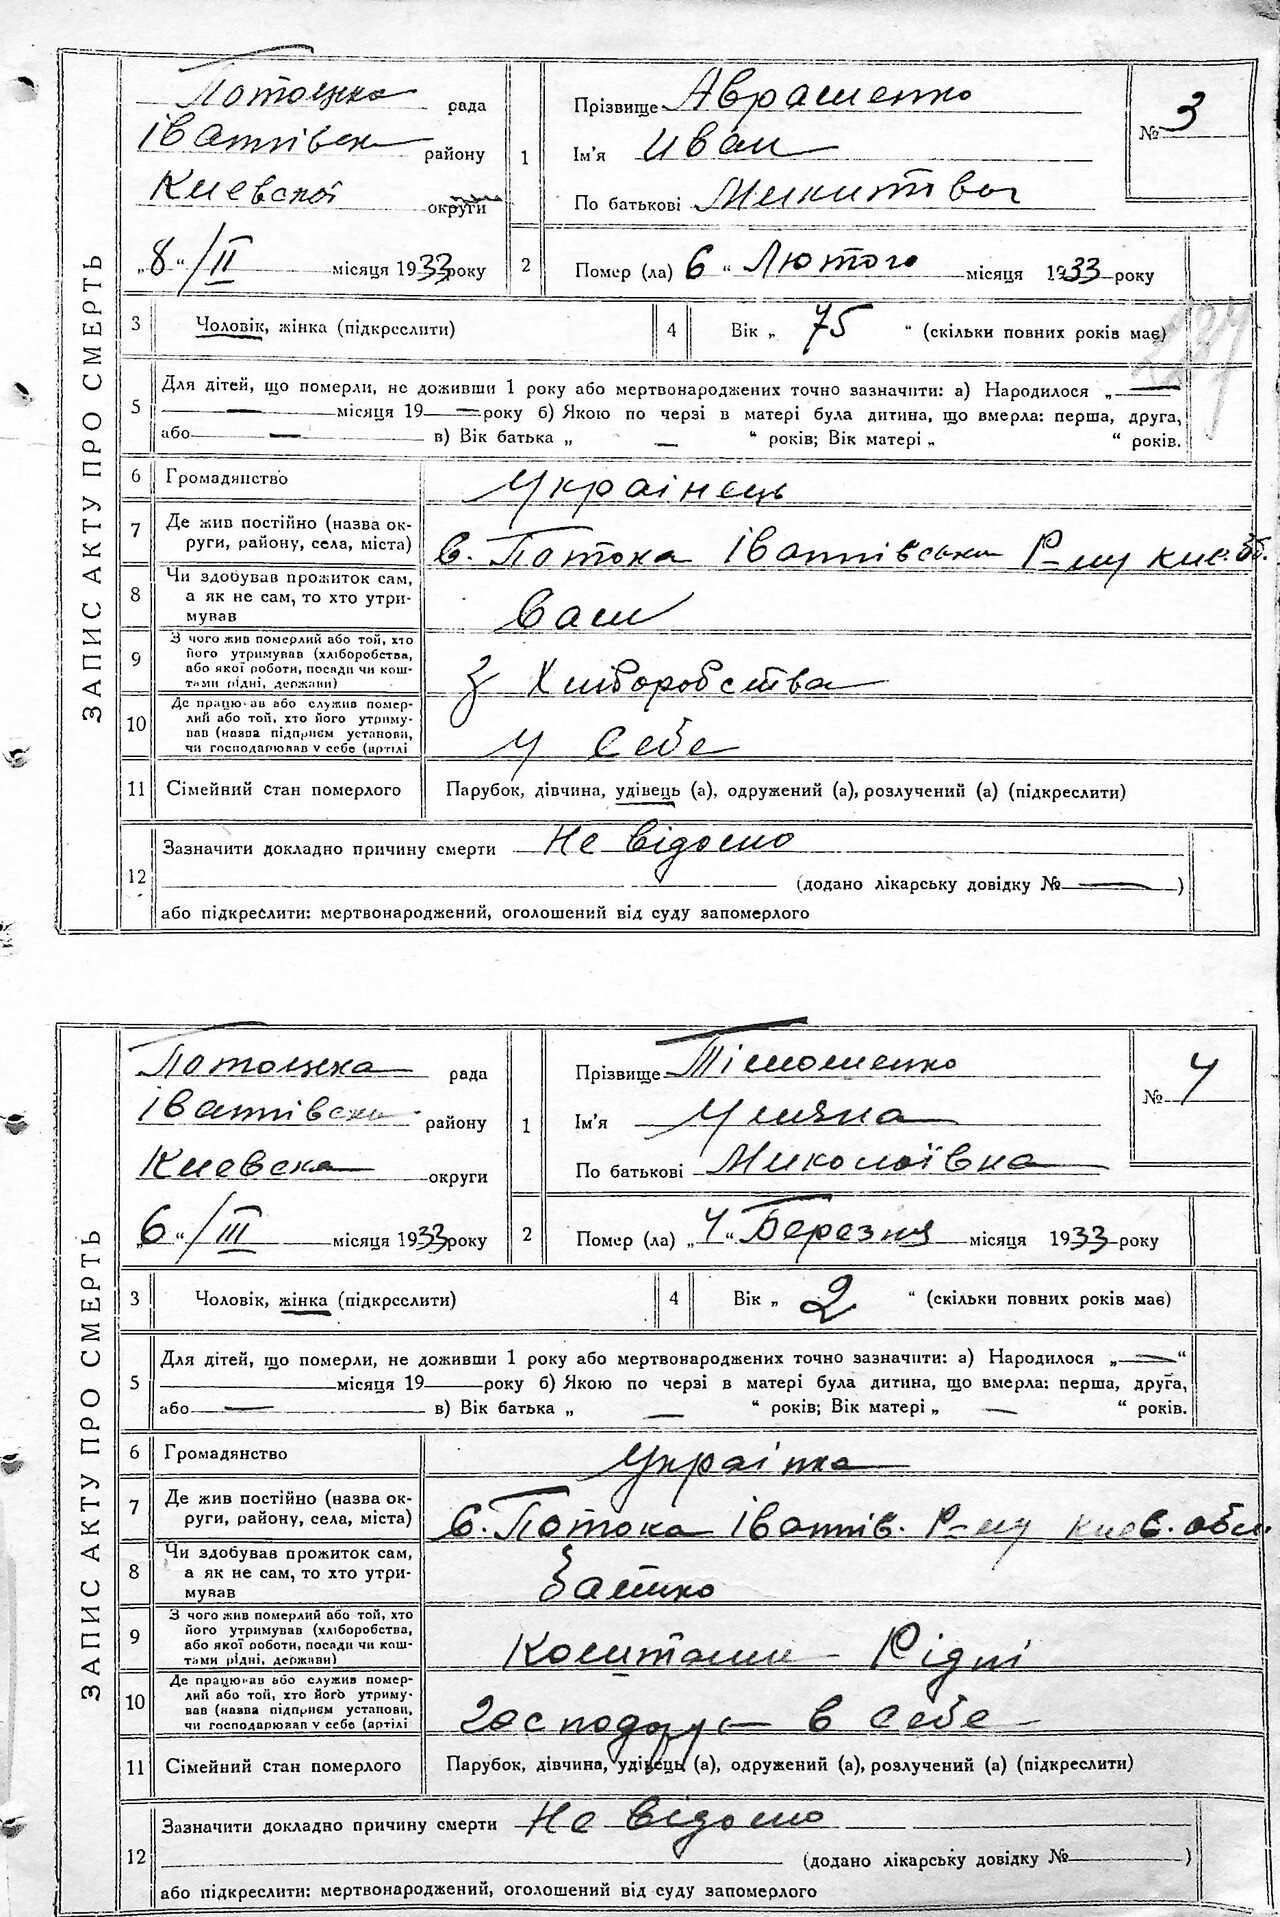 ЗАПИС АКТУ ПРО СМЕРТЬ
Потоцька рада
Іванківськ району
Киевской округи
„8“/II місяця 1933 року
1
Прізвище Аврашенко
Ім'я Иван
По батькові Микитвої
№ 3
2
Помер (ла) 6 “ Лютого місяця 1933 року
3 Чоловік, жінка (підкреслити)
4 Вік „ 75 “ (скільки повних років має)
5
Для дітей, що померли, не доживши 1 року або мертвонароджених точно зазначити: а) Народилося „—
— місяця 19— року б) Якою по черзі в матері була дитина, що вмерла: перша, друга,
або — в) Вік батька „ — “ років; Вік матері „ “ років.
6 Громадянство Українець
7 Де жив постійно (назва ок-
руги, району, села, міста) с. Потока Іванківськи Р-ну Киє. об.
8 Чи здобував прожиток сам,
а як не сам, то хто утри-
мував Сам
9 З чого жив померлий або той, хто
його утримував (хліборобства,
або якої роботи, посади чи кош-
тами рідні, держави) З Хліборобства
10 Де працював або служив помер-
лий або той, хто його утриму-
вав (назва підприєм установи,
чи господарював у себе (артілі У Себе
11 Сімейний стан померлого Парубок, дівчина, удівець (а), одружений (а), розлучений (а) (підкреслити)
12
Зазначити докладно причину смерти Не відомо
(додано лікарську довідку №— )
або підкреслити: мертвонароджений, оголошений від суду запомерлого
ЗАПИС АКТУ ПРО СМЕРТЬ
Потоцька рада
Іванківськ району
Киевска округи
„6“/III місяця 1933 року
1
Прізвище Тімошенко
Ім'я Уляна
По батькові Миколаївна
№ 4
2
Помер (ла) „4“ Березня місяця 1933 року
3 Чоловік, жінка (підкреслити)
4 Вік „ 2 “ (скільки повних років має)
5
Для дітей, що померли, не доживши 1 року або мертвонароджених точно зазначити: а) Народилося „—“
місяця 19 року б) Якою по черзі в матері була дитина, що вмерла: перша, друга,
або — в) Вік батька „ — “ років; Вік матері „ — “ років.
6 Громадянство Українка
7 Де жив постійно (назва ок-
руги, району, села, міста) с. Потока Іванків. Р-ну Киев. обл.
8 Чи здобував прожиток сам,
а як не сам, то хто утри-
мував Батько
9 З чого жив померлий або той, хто
його утримував (хліборобства,
або якої роботи, посади чи кош-
тами рідні, держави) Коштами Рідні
10 Де працював або служив помер-
лий або той, хто його утриму-
вав (назва підприєм установи,
чи господарював у себе (артілі в Себе
11 Сімейний стан померлого Парубок, дівчина, удівець (а), одружений (а), розлучений (а) (підкреслити)
12
Зазначити докладно причину смерти Не відомо
(додано лікарську довідку № )
або підкреслити: мертвонароджений, оголошений від суду запомерлого